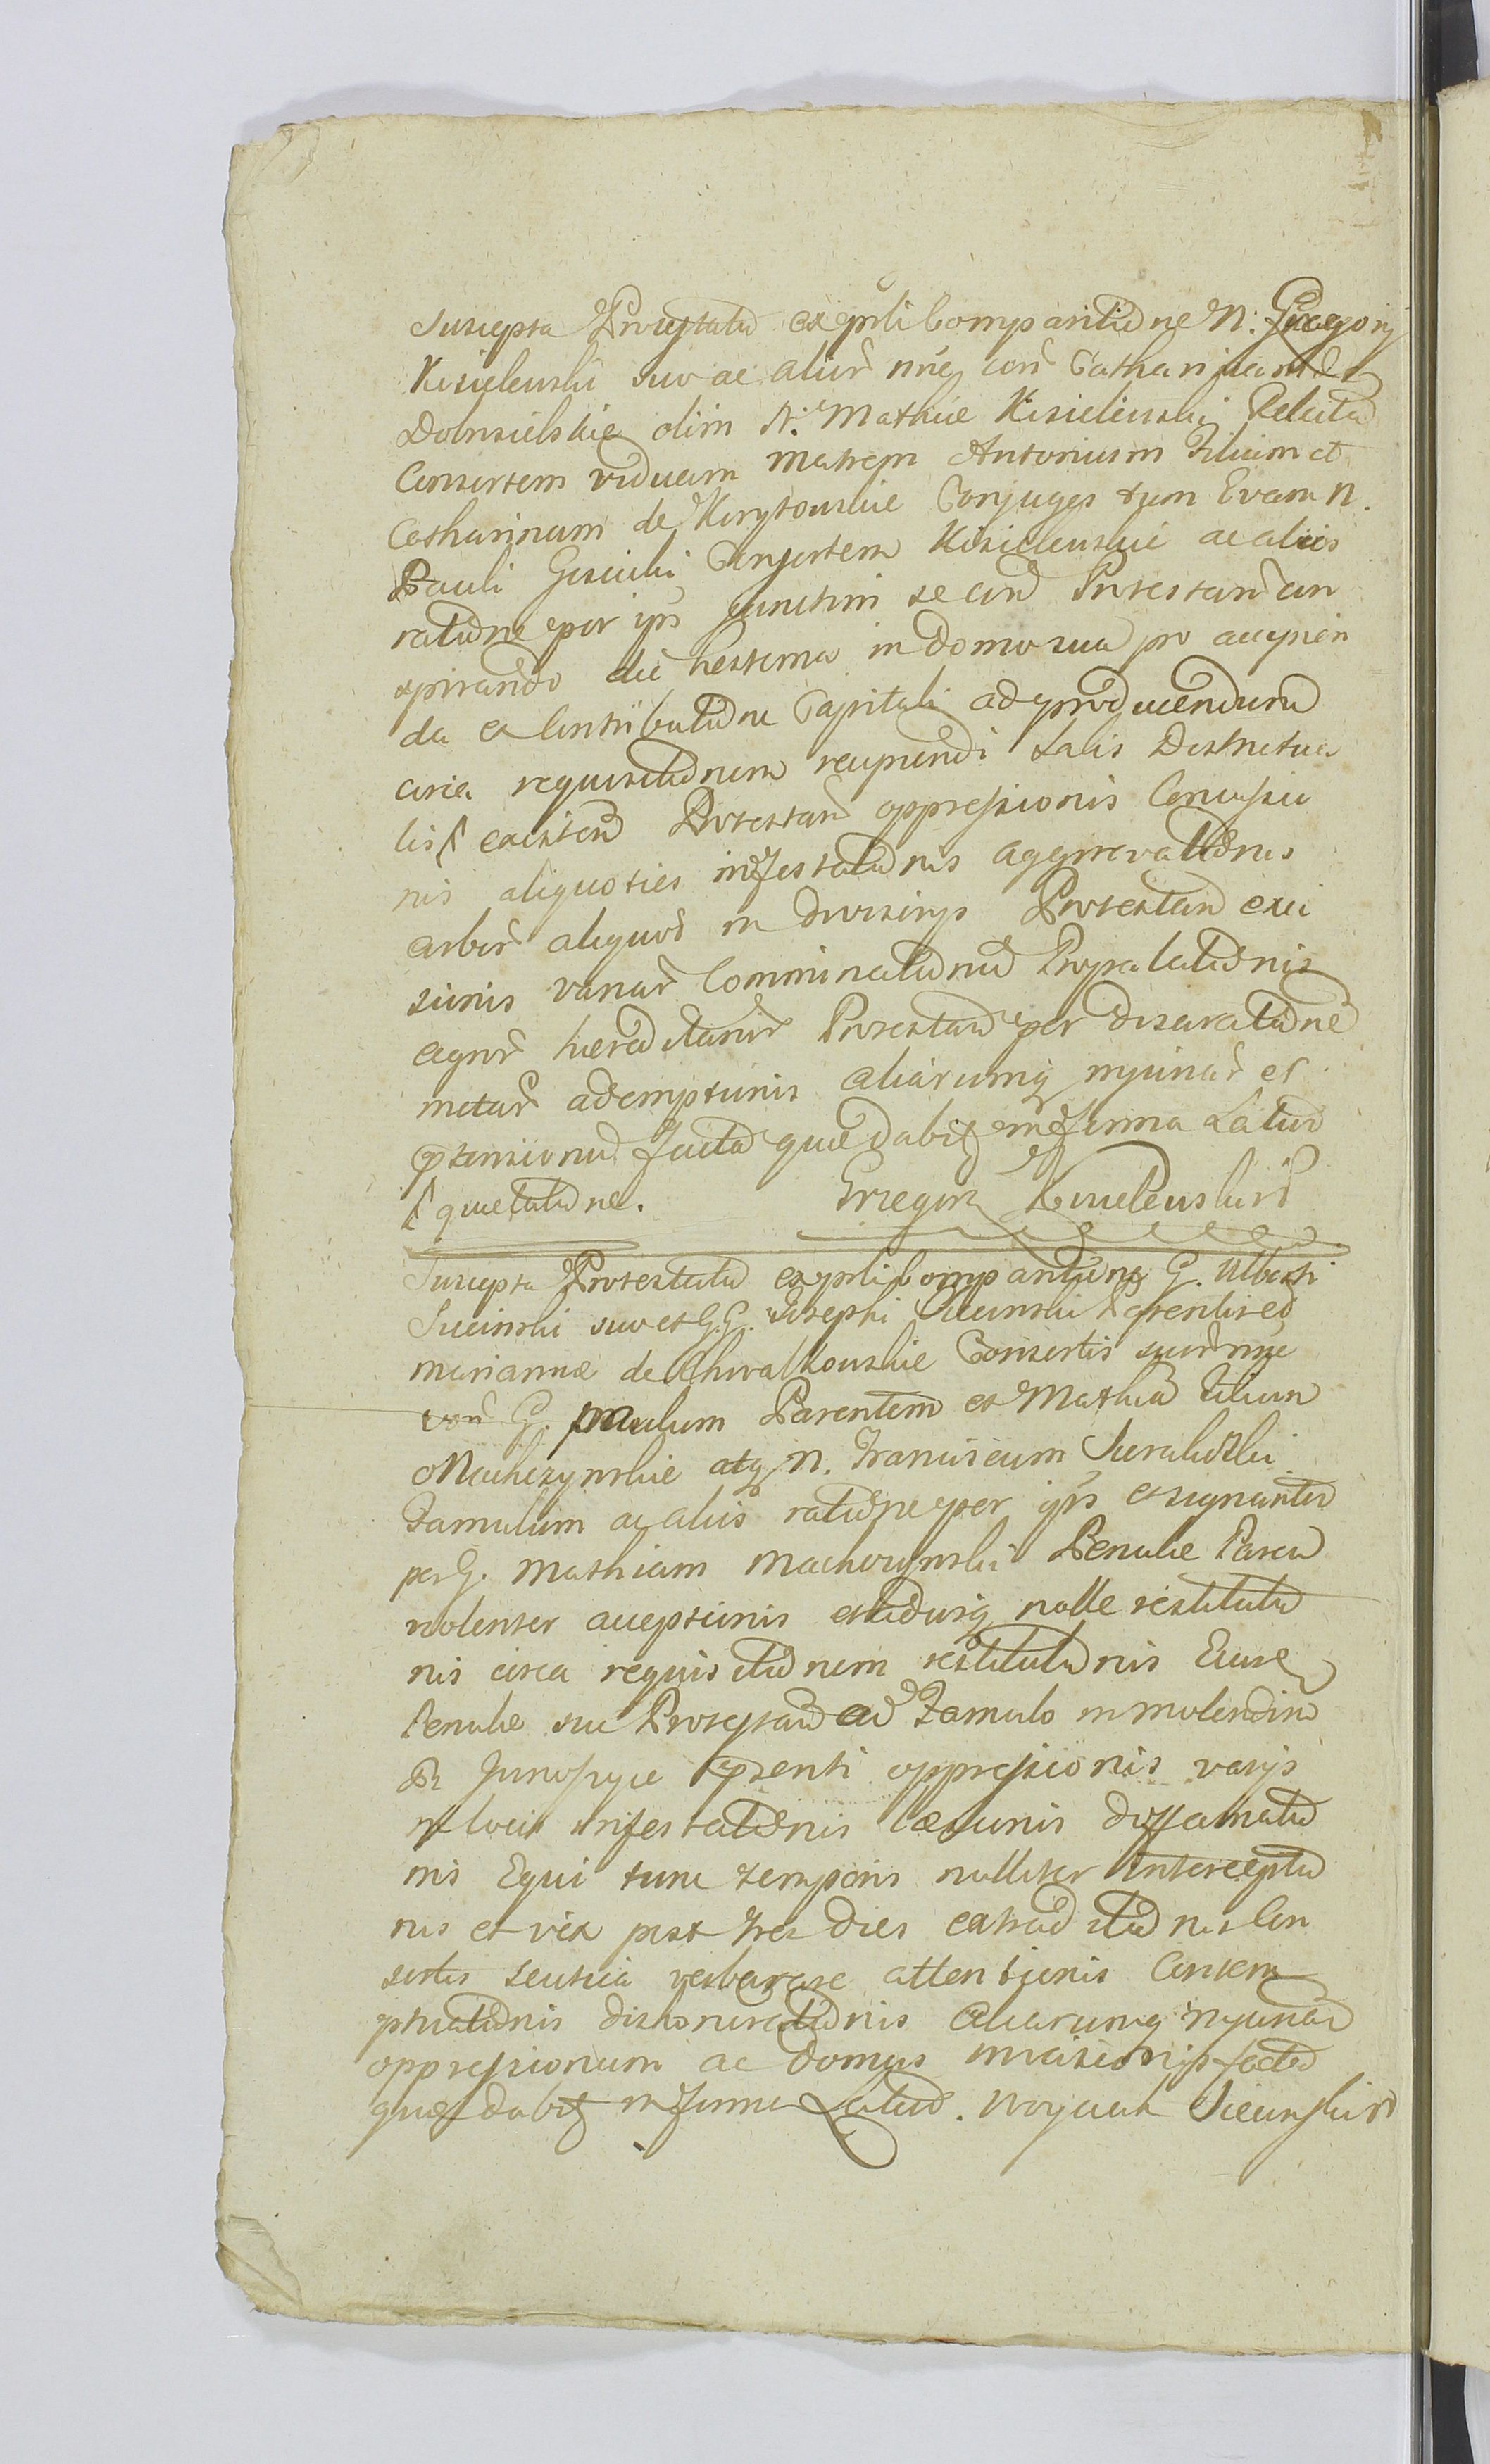 Suscepta Protestatio ex psti Comparitione N. Gregorij
Kisielewski suo ac alior nne con Catharinam de
Dobrzielskie olim N. Mathiæ Kisielewski Relicta
Consortem viduam matrem Antonium Filium et
Catharinam de Korytowskie Conjuges tum Evam N.
Pauli Consortem Kisielewskie ac alios
ratione per ips junctim se cum Protestan con
spirando die hesterna in domo sua pro accipien
da a Contributione Capitali ad producendum
circa requisitionem recipiendi Salis Districtua
lis existen Protestan oppressionis Concussio
nis aliquoties infestationis aggravationis
arbor aliquot in divisinys Protestan exci
sionis variar Comminationu Propalationis
agror hæreditarior Protestan per disaratione
metar ademptionis aliarumq injuriar et
ptensionu facta quæ dabit in forma Latio
quietatione. Grzegorz Kisielewski
Suscepta Protestatio ex psti Comparitione G. Alberti
Sieciński suo et G.G. Josephi Sieciński Parentis ed
Mariannæ de Chwalkowskie Consortis suor nne
con G. Paulum Parentem et Mathia Filium
Machczynskie atq N. Franciscum
Famulum ac alios ratione per ips et signanter
per G. Mathiam Machczynski Penulæ Pascu
violenter acceptionis eiusdemq nolle restitutio
nis circa requisitionem restitutionis Eiuse
Penulæ sue Protestan ad Famulo in molendino
psenti oppressionis varijs
in locis infestationis læsionis diffamatio
nis Equi tunc temporis nulliter Interceptio
nis et vix post tres dies extraditionis Con
sortis scutica verberare attentionis Contem
ptuationis dishonorationis aliarumq Injuriar
oppressionum ac domus invasionis facta
quæ dabit in forma Latio. Woyciech Sieciński